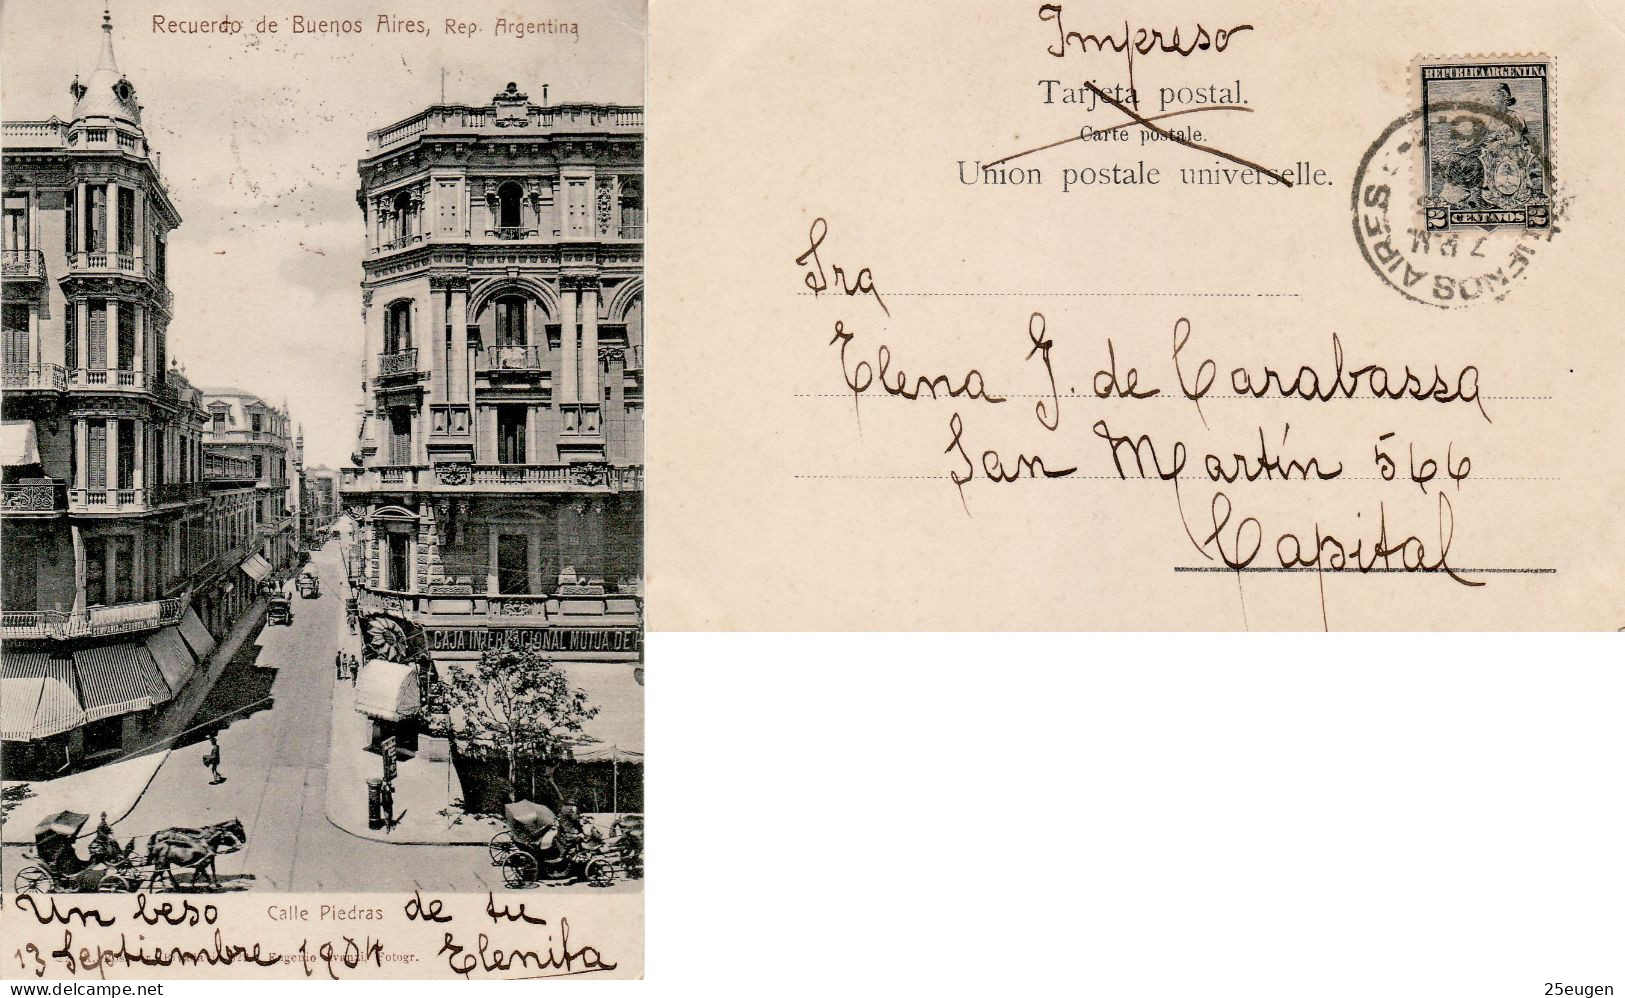 Recuerdo de Buenos Aires, Rep. Argentina
CAJA INTERNACIONAL MUTUA DE
Calle Piedras
Un beso de tu
13 Septiembre 1904 Elenita
Eugenio Avanzi, Fotogr.
Impreso
Tarjeta postal.
Carte postale.
Union postale universelle.
REPUBLICA ARGENTINA
2 CENTAVOS 2
BUENOS AIRES
7 P.M.
Sra
Elena G. de Carabassa
San Martín 566
Capital
delcampe.net
25eugen